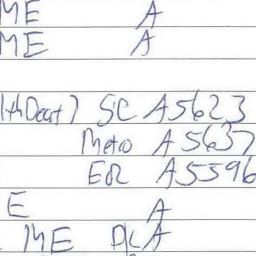 ME A
ME A
lthDeat) SC A5623
Meto A5637
ER A5596
E A
ME A